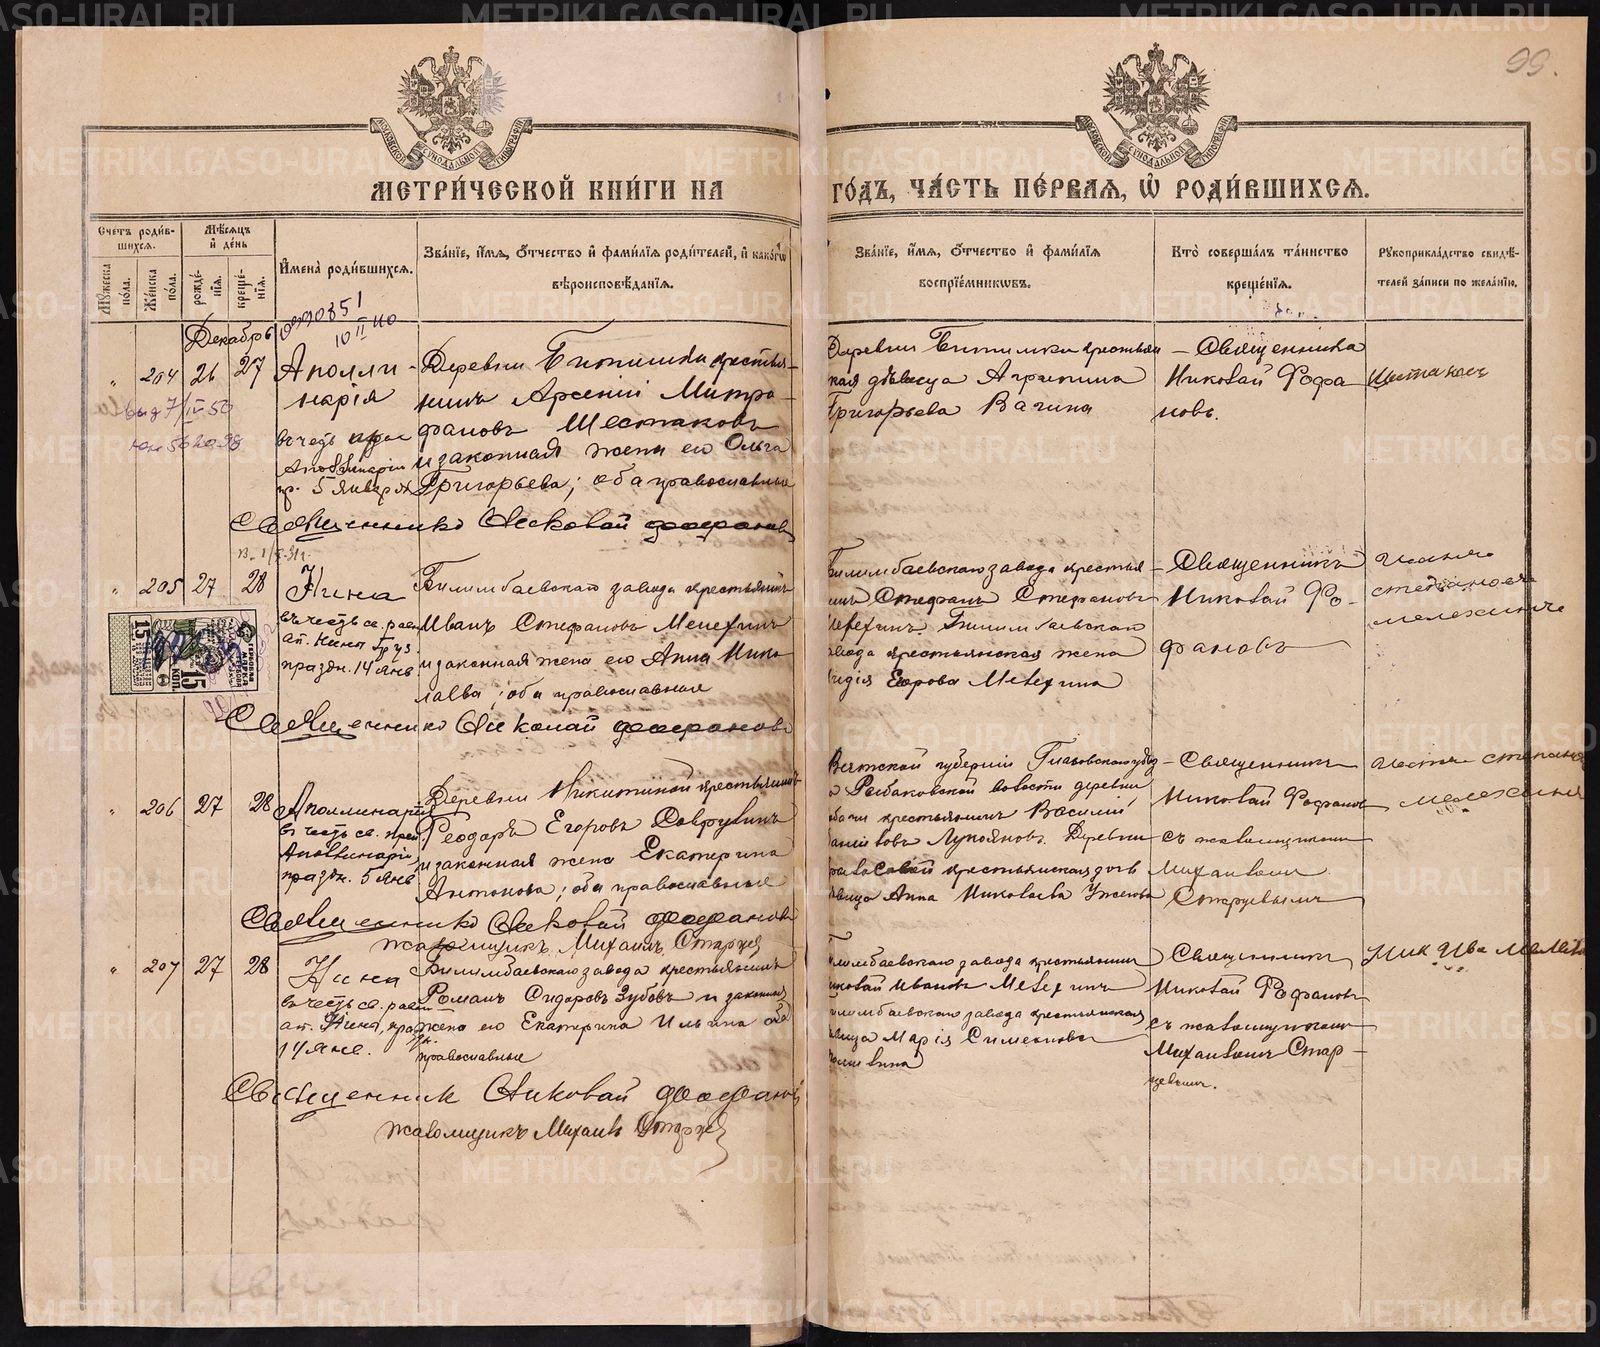 99.
МОСКОВСКОЙ СУНОДАЛЬНОЙ ТИПОГРАФІИ
МОСКОВСКОЙ СУНОДАЛЬНОЙ ТИПОГРАФІИ
МЕТРИ́ЧЕСКОЙ КНИ́ГИ НА
ГО́ДЪ, ЧА́СТЬ ПЕ́РВАЯ, Ѡ҆ РОДИ́ВШИХСЯ.
Счетъ роди́в-
шихся.
Му́жеска по́ла.
Же́нска по́ла.
Мѣ́сяцъ
и҆ де́нь
рожде́-
нія.
креще́-
нія.
И҆мена̀ роди́вшихся.
Зва́ніе, и҆́мя, ѻ҆́тчество и҆ фами́лія роди́телей, и҆ како́гѡ
вѣроисповѣ́данія.
Зва́ніе, и҆́мя, ѻ҆́тчество и҆ фами́лія
воспріе́мниковъ.
Кто̀ соверша́лъ та́инство
креще́нія.
Рукоприкла́дство свидѣ́-
телей за́писи по жела́нію.
Декабрь
10 II 40
204 26 27
Аполли-
нарія
въ честь
Аполлинаріи
пр. 5 Января
Деревни Битимки крестья-
нинъ Арсеній Митро-
фановъ Шестаковъ
и законная жена его Ольга
Григорьева; оба православные
Деревни Битимки крестьян
ская дѣвица Агрипина
Григорьева Вагина
Священникъ
Николай Фофа
новъ.
Шестаковъ
Священникъ Николай Фофановъ
205 27 28
Нина
въ честь св. равн
ап. Нины Груз.
праздн. 14 Янв
Билимбаевскаго завода крестьянинъ
Иванъ Стефановъ Мелехинъ
и законная жена его Анна Нико
лаева; оба православные
Билимбаевскаго завода крестья
нинъ Стефанъ Стефановъ
Мелехинъ. Билимбаевскаго
завода крестьянская жена
Лидія Егорова Мелехина
Священникъ
Николай Фо-
фановъ
15 КОП.
Священникъ Николай Фофановъ
206 27 28
Аполлинарія
въ честь св. преп
Аполлинаріи
праздн. 5 Янв
Деревни Никитиной крестьянинъ
Ѳеодоръ Егоровъ
и законная жена Екатерина
Антонова; оба православные
Вятской губерніи Глазовскаго уѣзд
Рыбаковской волости деревни
крестьянинъ Василій
Лукояновъ. Деревни
крестьянская дочь
дѣвица Анна Николаева
Священникъ
Николай Фофановъ
съ псаломщикомъ
Михаиломъ
Старцевымъ
Священникъ Николай Фофановъ
псаломщикъ Михаилъ Старцев
207 27 28
Нина
въ честь св. равн
ап. Нины, праздн.
14 Янв.
Билимбаевскаго завода крестьянинъ
Романъ Сидоровъ Зубовъ и законная
жена его Екатерина Ильина оба
православные
Билимбаевскаго завода крестьянинъ
Николай Ивановъ Мелехинъ
Билимбаевскаго завода крестьянская
дѣвица Марія Симеонова
Священникъ
Николай Фофановъ
съ псаломщикомъ
Михаиломъ Стар-
цевымъ.
Ник Ива Мелех
Священник Николай Фофанов
псаломщикъ Михаилъ Старцев
METRIKI.GASO-URAL.RU